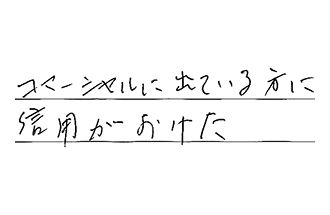 コマーシャルに出ている方に
信用がおけた